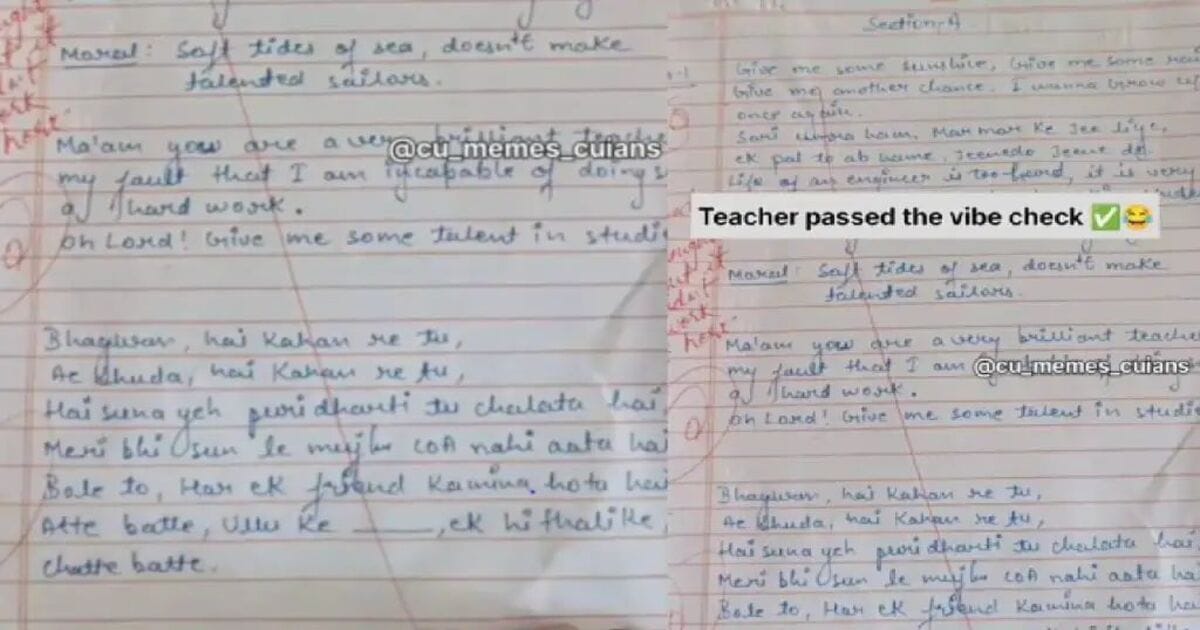 Moral: Soft tides of sea, doesn't make
talented sailors.
Ma'am you are a very brilliant teache
@cu_memes_cuians
my fault that I am incapable of doing s
hard work.
Oh Lord! Give me some talent in studi
Bhagwan, hai Kahan re tu,
Ae Khuda, hai Kahan re tu,
Hai suna yeh puri dharti tu chalata hai,
Meri bhi sun le mujhe COA nahi aata hai
Bole to, Har ek friend Kamina hota hai
Atte batte, Ullu ke ____, ek hi thali ke
chatte batte.
Section-A
Give me some sunshine, Give me some rai
Give me another chance. I wanna Grow up
once again.
Sari umra ham, Mar mar ke jee liye,
ek pal to ab hame, Jeenedo Jeene do.
Life of an engineer is too hard, it is very
Teacher passed the vibe check ✅😂
Moral: Soft tides of sea, doesn't make
talented sailors.
Ma'am you are a very brilliant teache
my fault that I am
@cu_memes_cuians
hard work.
Oh Lord! Give me some talent in studi
Bhagwan, hai Kahan re tu,
Ae Khuda, hai Kahan re tu,
Hai suna yeh puri dharti tu chalata hai,
Meri bhi sun le mujhe COA nahi aata hai
Bole to, Har ek friend Kamina hota hai